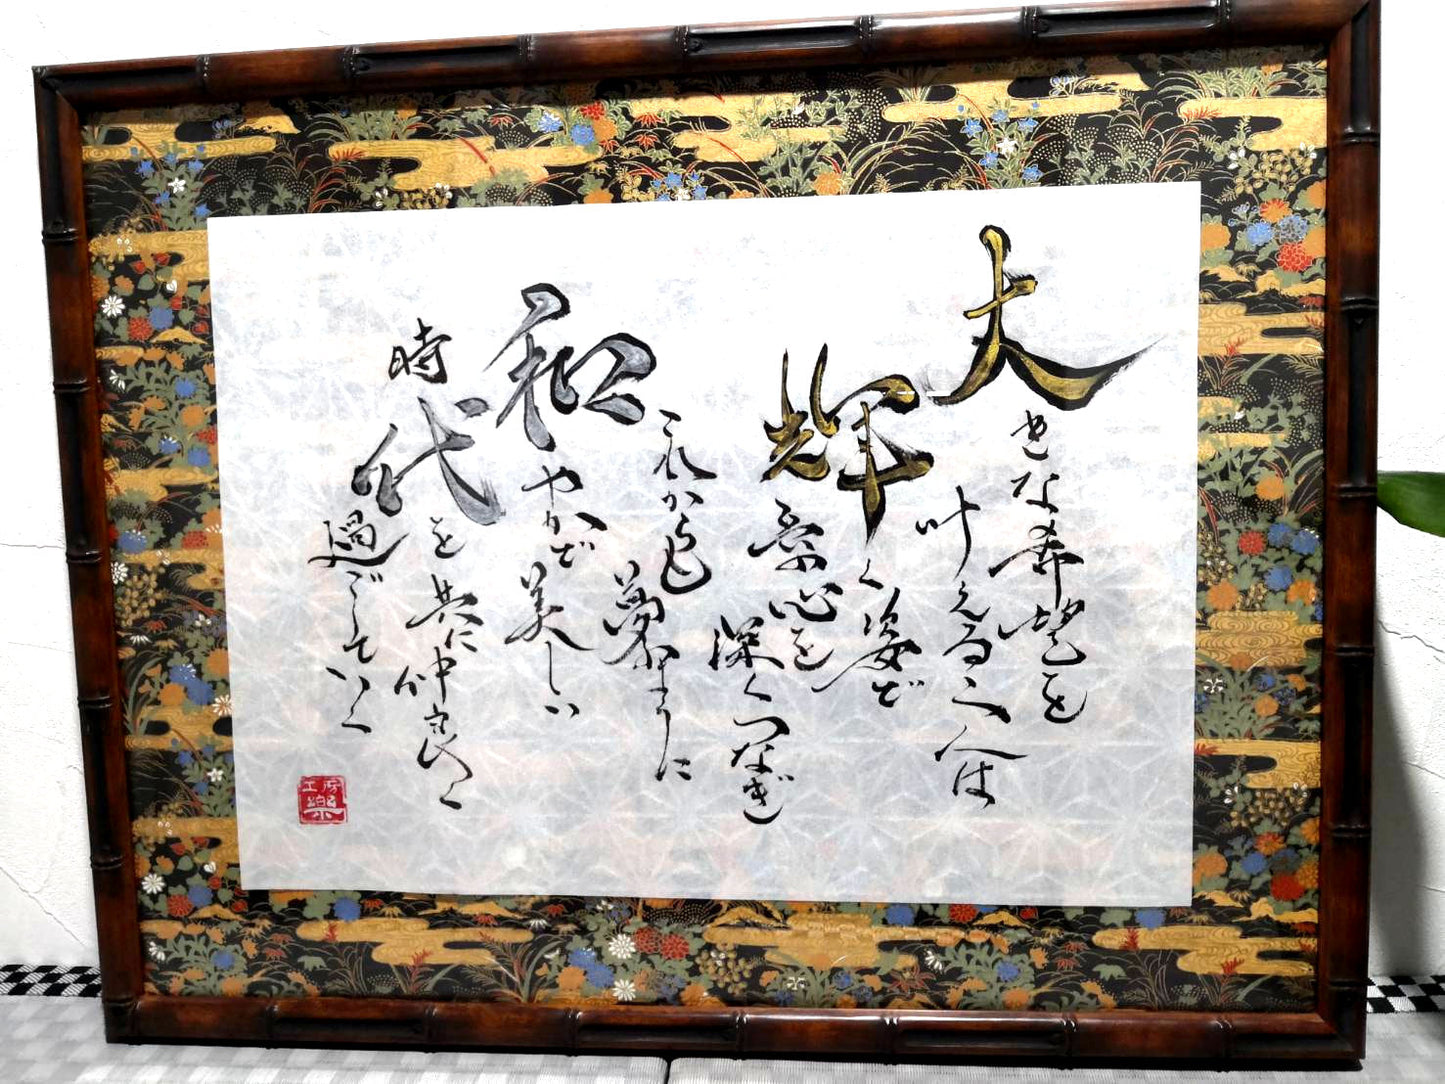 大きな希望を
叶える人は
輝く姿で
親心を
深くつなぎ
これからも
夢のように
和やかで
美しい
時代を
共に仲良く
過ごしていく
工房
樂